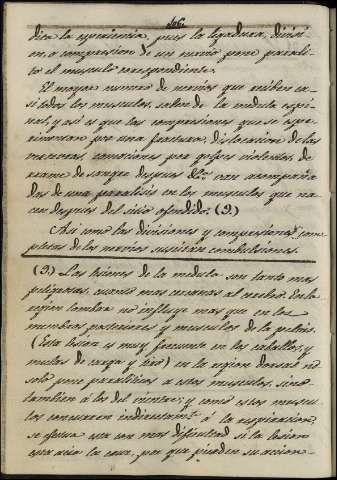 106.
dica la esperiencia, pues la ligadura, divisi-
on, o compresion de un nervio pone parali-
to el musculo correspondiente.
El mayor numero de nervios que reciben ca-
si todos los musculos, salen de la medula espi-
nal, y asi es que las compresiones que se espe-
rimentan por una fractura, dislocacion de las
vertebras, comociones por golpes violentos, de
rrame de sangre despues &c. van acompaña
dos de una paralisis en los musculos que na
cen despues del sitio ofendido. (3.)
Asi como las divisiones y compresiones com-
pletas de los nervios suscitan combulsiones.
(3.) Las lesiones de la medula son tanto mas
peligrosas, cuanto mas cercanas al cerebro. En la
rejion lombar no influye mas que en los
miembros posteriores y musculos de la pelvis.
(Esta lesion es muy frecuente en los caballos, y
mulas de carga y tiro) en la rejion dorsal no
solo pone paraliticos a estos musculos, sino
tambien a los del vientre; y como estos muscu-
los concurren indirectam.te á la respiracion,
se efectua esta con mas dificultad si la lesion
esta acia la cruz, por que pierden su accion-